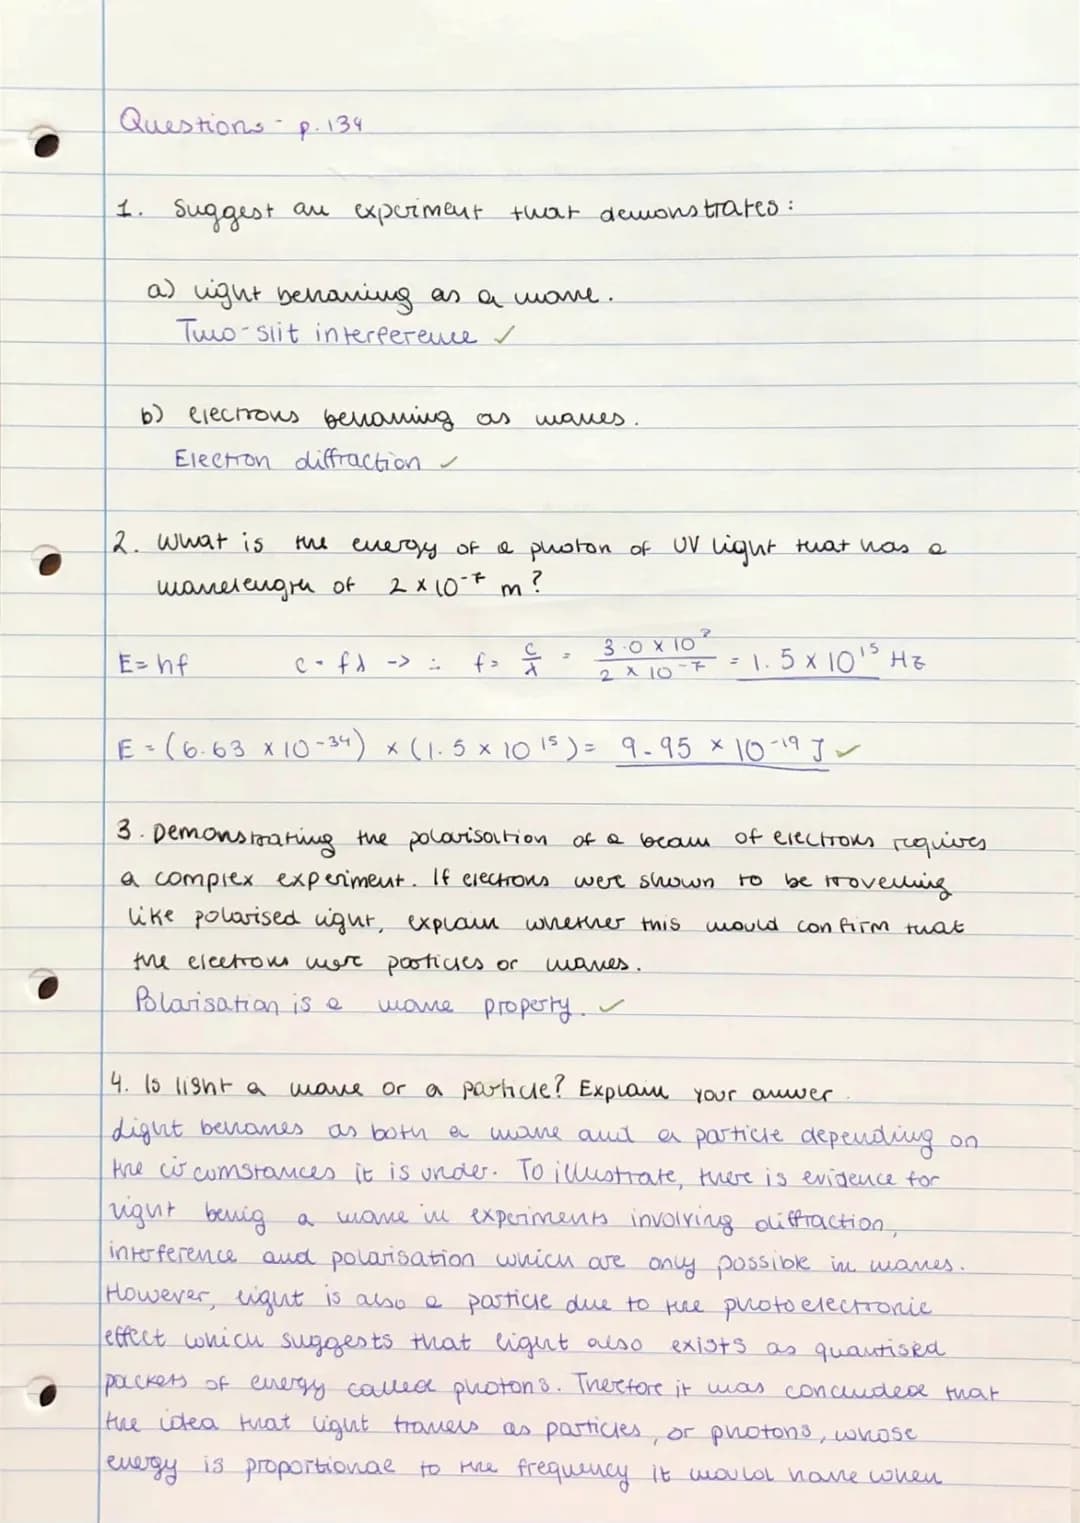 Questions - p. 134
1. Suggest an experiment that demonstrates:
a) light behaving as a wave.
Two-slit interference ✓
b) electrons behaving as waves.
Electron diffraction ✓
2. What is the energy of a photon of UV light that has a
wavelength of 2 × 10⁻⁷ m?
E=hf c = fλ -> ∴ f = c/λ = 3.0 × 10⁸ / 2 × 10⁻⁷ = 1.5 × 10¹⁵ Hz
E = (6.63 × 10⁻³⁴) × (1.5 × 10¹⁵) = 9.95 × 10⁻¹⁹ J ✓
3. Demonstrating the polarisation of a beam of electrons requires
a complex experiment. If electrons were shown to be travelling
like polarised light, explain whether this would confirm that
the electrons were particles or waves.
Polarisation is a wave property. ✓
4. Is light a wave or a particle? Explain your answer.
Light behaves as both a wave and a particle depending on
the circumstances it is under. To illustrate, there is evidence for
light being a wave in experiments involving diffraction,
interference and polarisation which are only possible in waves.
However, light is also a particle due to the photoelectronic
effect which suggests that light also exists as quantised
packets of energy called photons. Therefore it was concluded that
the idea that light travels as particles, or photons, whose
energy is proportional to the frequency it would have when